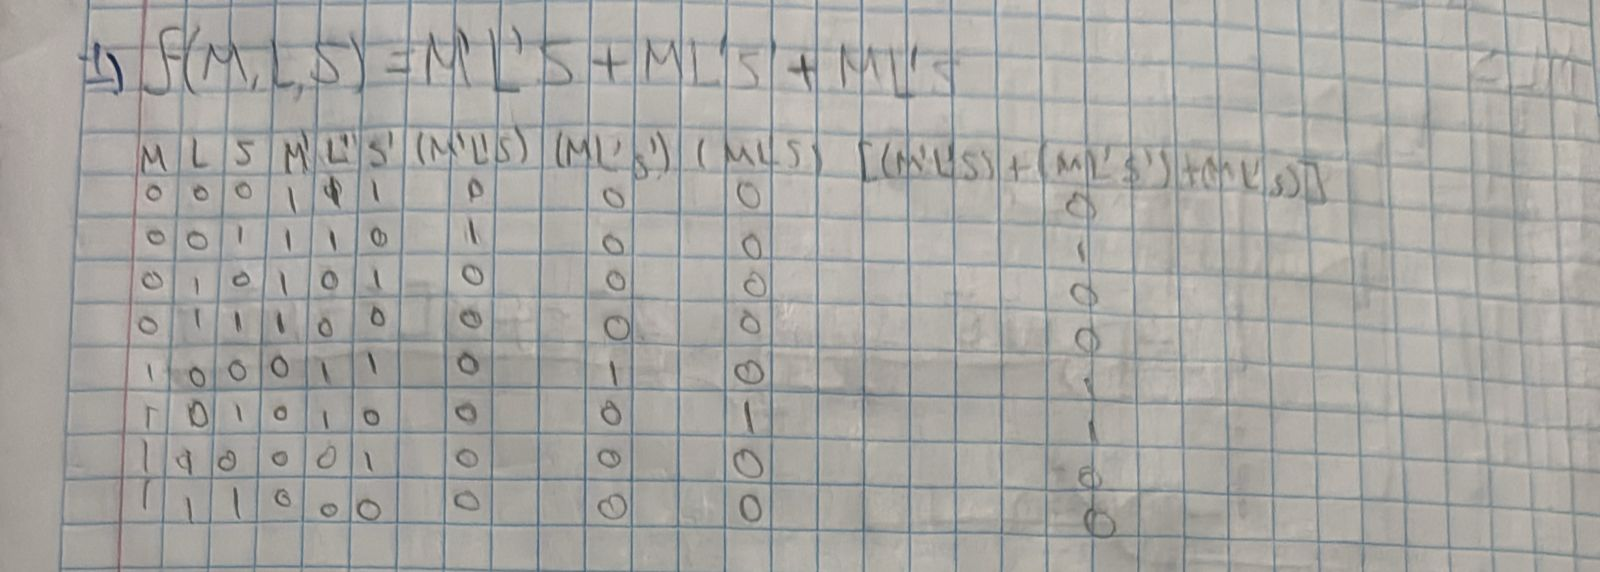 1) f(M,L,S) = M'L'S + ML'S' + ML'S
M L S M' L' S' (M'L'S) (ML'S') (ML'S) [(M'L'S) + (ML'S') + (ML'S)]
0 0 0 1 1 1 0 0 0 0
0 0 1 1 1 0 1 0 0 1
0 1 0 1 0 1 0 0 0 0
0 1 1 1 0 0 0 0 0 0
1 0 0 0 1 1 0 1 0 1
1 0 1 0 1 0 0 0 1 1
1 1 0 0 0 1 0 0 0 0
1 1 1 0 0 0 0 0 0 0